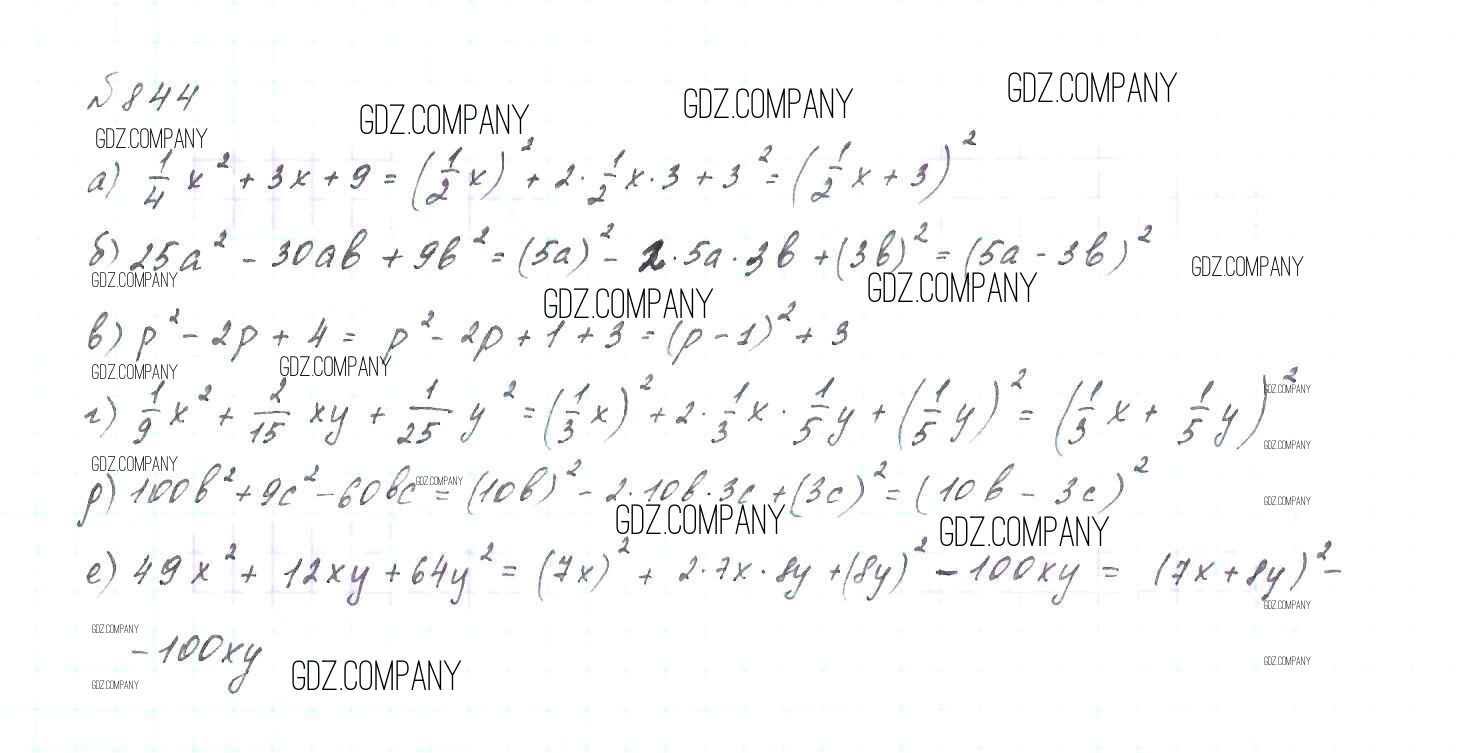 №844
GDZ.COMPANY GDZ.COMPANY GDZ.COMPANY GDZ.COMPANY
а) 1/4 x² + 3x + 9 = (1/2 x)² + 2·1/2 x·3 + 3² = (1/2 x + 3)²
б) 25a² - 30ab + 9b² = (5a)² - 2·5a·3b + (3b)² = (5a - 3b)²
GDZ.COMPANY GDZ.COMPANY GDZ.COMPANY GDZ.COMPANY
в) p² - 2p + 4 = p² - 2p + 1 + 3 = (p - 1)² + 3
GDZ.COMPANY GDZ.COMPANY GDZ.COMPANY
г) 1/9 x² + 2/15 xy + 1/25 y² = (1/3 x)² + 2·1/3 x·1/5 y + (1/5 y)² = (1/3 x + 1/5 y)²
GDZ.COMPANY GDZ.COMPANY GDZ.COMPANY
д) 100b² + 9c² - 60bc = (10b)² - 2·10b·3c + (3c)² = (10b - 3c)²
GDZ.COMPANY GDZ.COMPANY GDZ.COMPANY
е) 49x² + 12xy + 64y² = (7x)² + 2·7x·8y + (8y)² - 100xy = (7x + 8y)² -
GDZ.COMPANY GDZ.COMPANY
- 100xy
GDZ.COMPANY GDZ.COMPANY GDZ.COMPANY